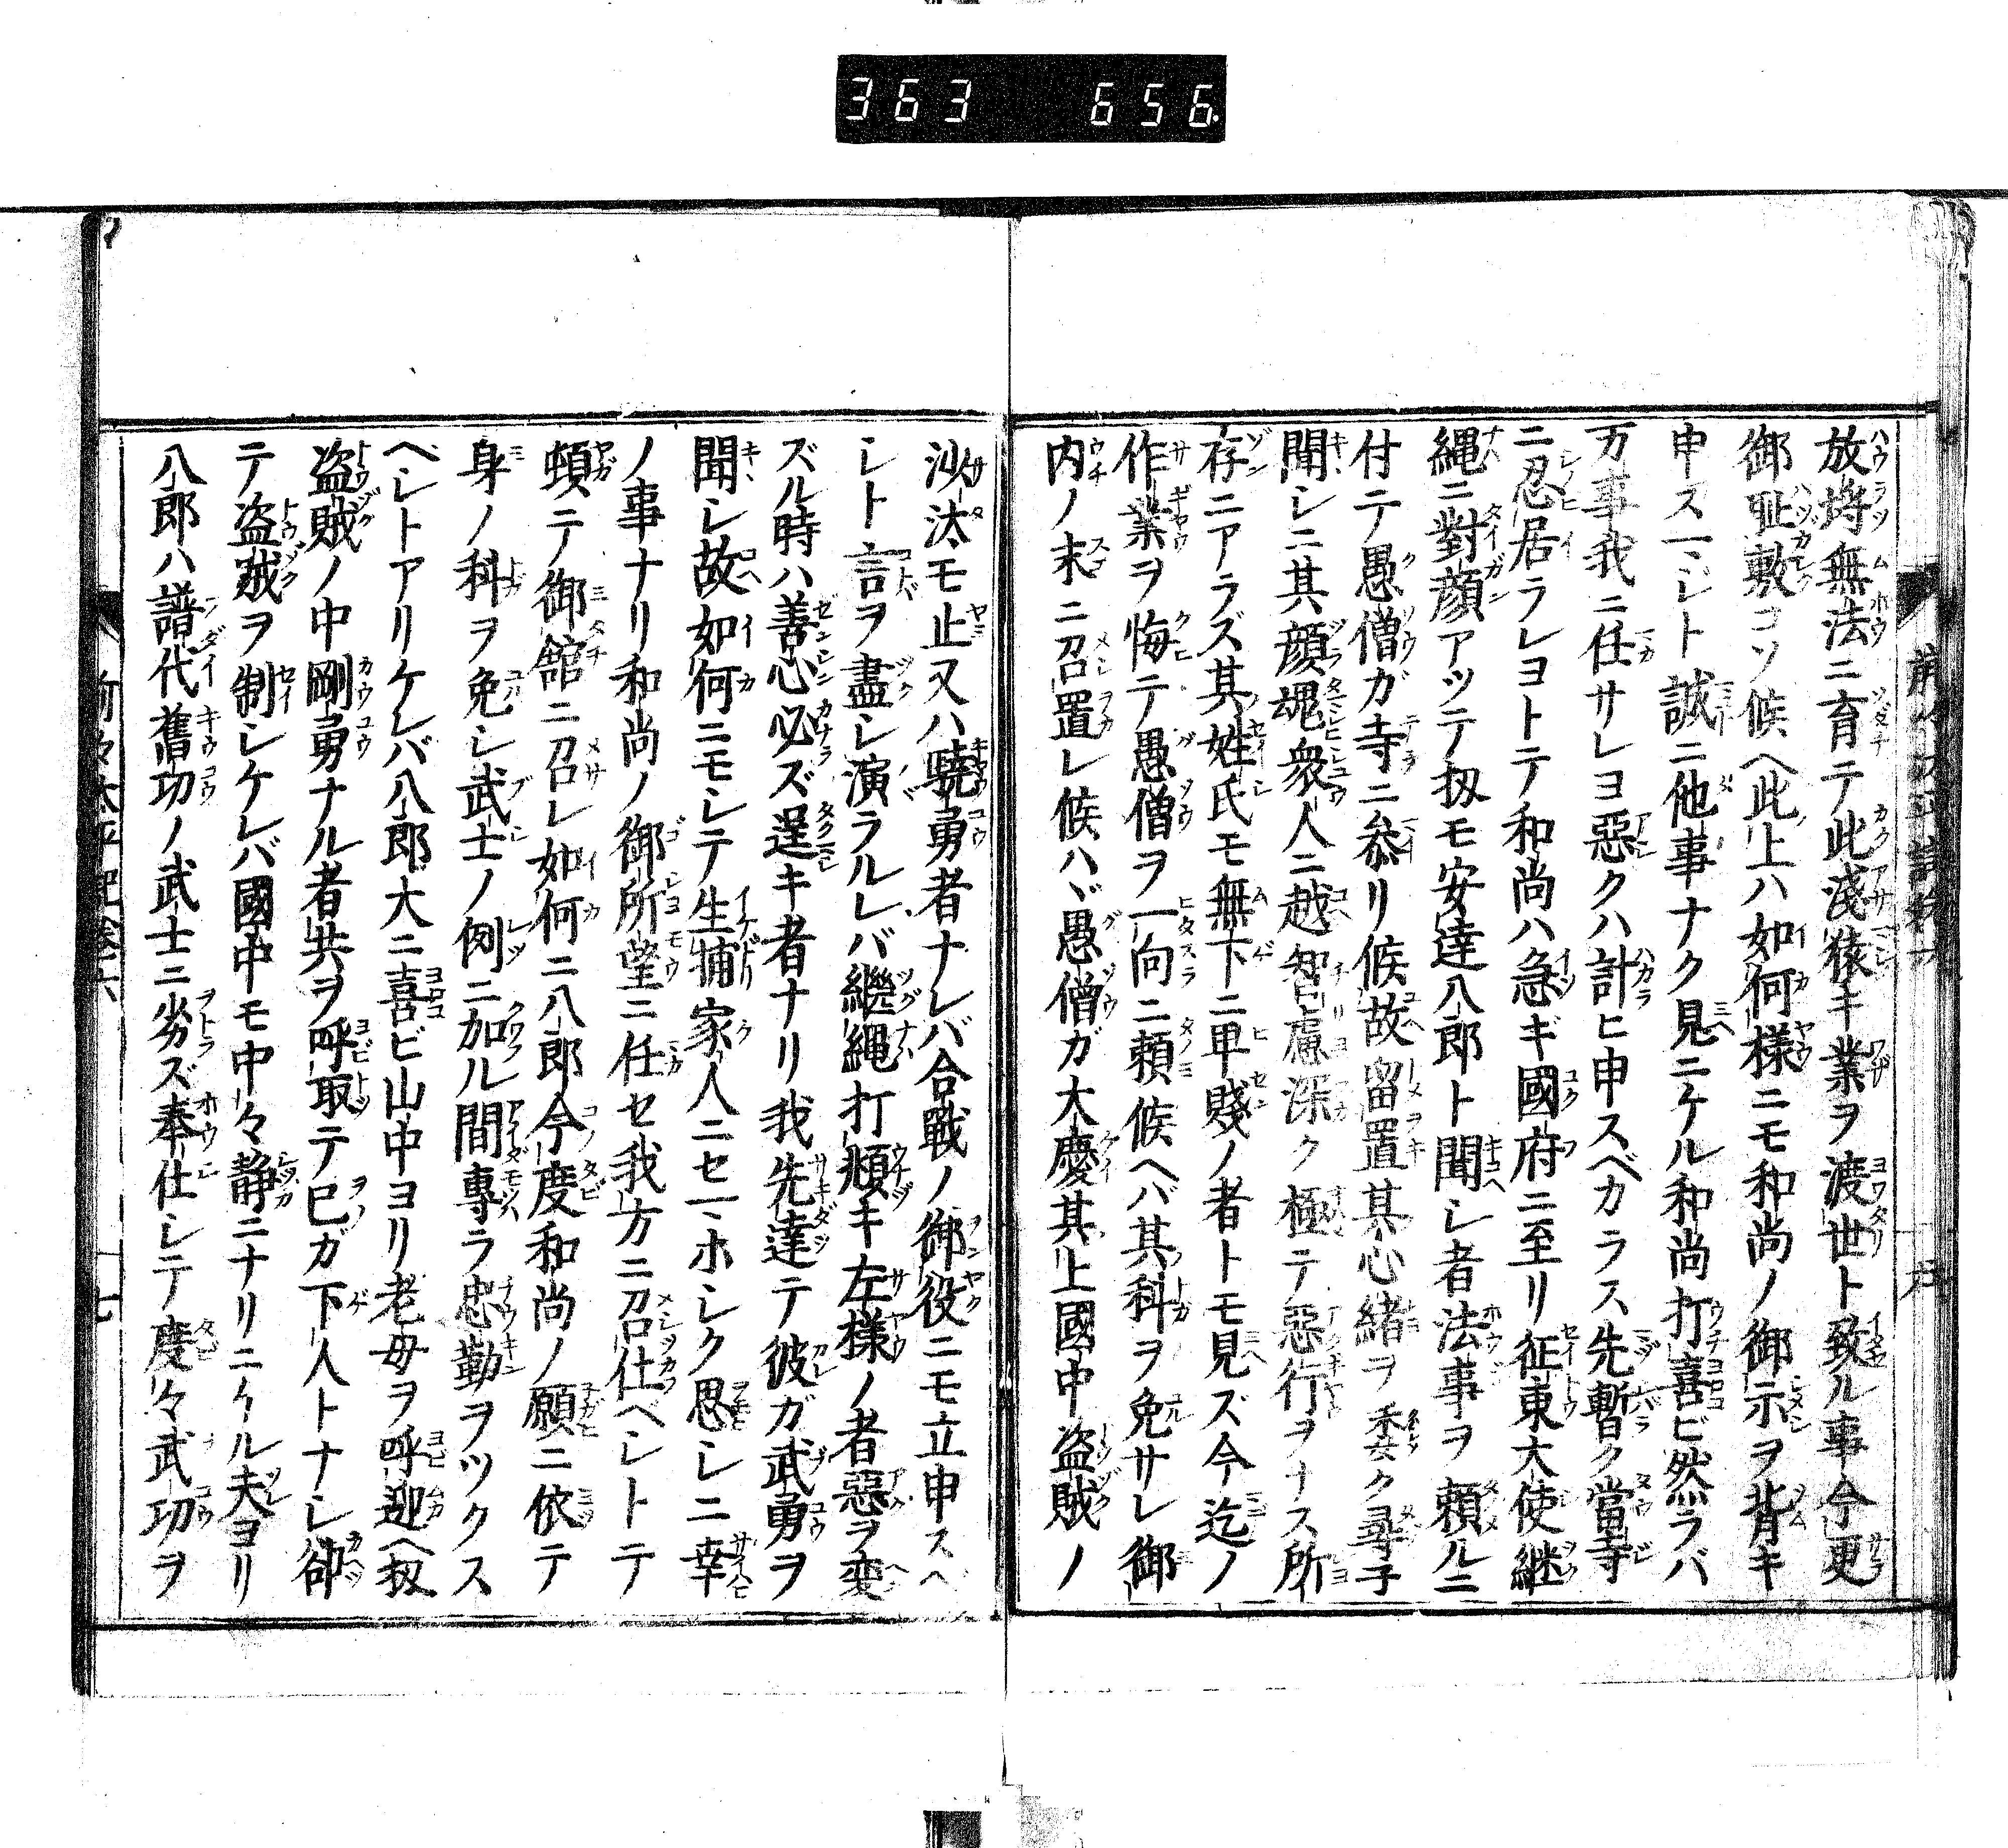 363 656
放埓無法ニ育テ此淺猿キ業ヲ渡世ト致ル事今更
御耻敷コソ候ヘ此上ハ如何様ニモ和尚ノ御示ヲ背キ
申スヿレト誠ニ他事ナク見ニケル和尚打喜ビ然ラバ
万事我ニ任サレヨ惡クハ計ヒ申スベカラス先暫ク當寺
ニ忍居ラレヨトテ和尚ハ急ギ國府ニ至リ征東大使継
縄ニ對顔アツテ扨モ安達八郎ト聞シ者法事ヲ頼ルニ
付テ愚僧ガ寺ニ参リ候故留置其心緒ヲ委ク尋子
聞シニ其顔魂衆人ニ越智慮深ク極テ惡行ヲナス所
存ニアラズ其姓氏モ無下ニ卑賤ノ者トモ見ズ今迄ノ
作業ヲ悔テ愚僧ヲ一向ニ頼候ヘバ其科ヲ免サレ御
内ノ末ニ召置レ候ハヾ愚僧ガ大慶其上國中盗賊ノ
沙汰モ止又ハ驍勇者ナレバ合戰ノ御役ニモ立申スヘ
シト言ヲ盡シ演ラルレバ繼縄打頷キ左様ノ者惡ヲ変
ズル時ハ善心必ズ逞キ者ナリ我先達テ彼ガ武勇ヲ
聞シ故如何ニモシテ生捕家人ニセヿホシク思シニ幸
ノ事ナリ和尚ノ御所望ニ任セ我方ニ召仕ベシトテ
頓テ御舘ニ召レ如何ニ八郎今度和尚ノ願ニ依テ
身ノ科ヲ免シ武士ノ例ニ加ル間專ラ忠勤ヲツクス
ヘシトアリケレバ八郎大ニ喜ビ山中ヨリ老母ヲ呼迎ヘ扨
盗賊ノ中剛勇ナル者共ヲ呼取テ己ガ下人トナシ卻
テ盗賊ヲ制シケレバ國中モ中々静ニナリニケル夫ヨリ
八郎ハ譜代舊功ノ武士ニ劣ズ奉仕シテ度々武功ヲ
前々太平記卷六
七